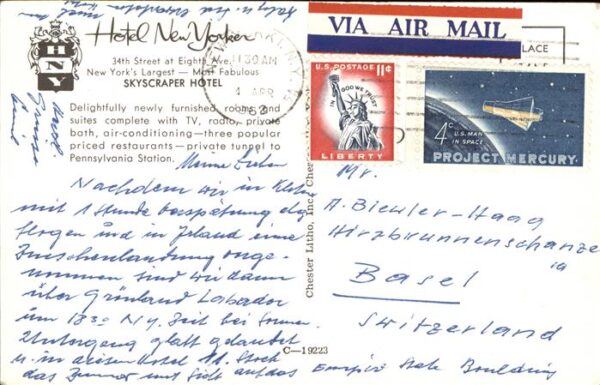 Hotel New Yorker
HNY
34th Street at Eighth Ave.
New York's Largest — Most Fabulous
SKYSCRAPER HOTEL
Delightfully newly furnished rooms and
suites complete with TV, radio, private
bath, air-conditioning—three popular
priced restaurants—private tunnel to
Pennsylvania Station.
11 30 AM
4 APR
VIA AIR MAIL
LACE
U.S. POSTAGE 11¢
IN GOD WE TRUST
LIBERTY
4c U.S. MAN
IN SPACE
PROJECT MERCURY
Meine Lieben
Nachdem wir in
mit 1 Stunde Verspätung
flogen und in Irland eine
Zwischenlandung
nommen sind wir dann
über Grönland Labrador
um 1830 N.Y. Zeit bei Sonnen-
Untergang glatt gelandet
u. in diesem Hotel Stock
das Zimmer mit Sicht auf das Empire State Building
Mr.
A. Biechler-Haag
Hirzbrunnenschanze
Basel
Switzerland
Chester Litho, Inc., Chester
C—19223